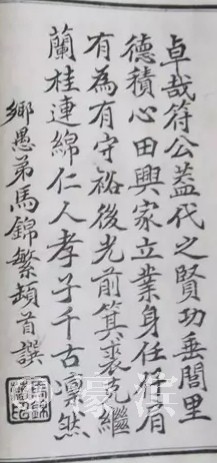 卓哉符公蓋代之賢功垂閭里
德積心田興家立業身任仔肩
有為有守裕後光前箕裘克繼
蘭桂連綿仁人孝子千古凜然
鄉愚弟馬錦繁頓首譔